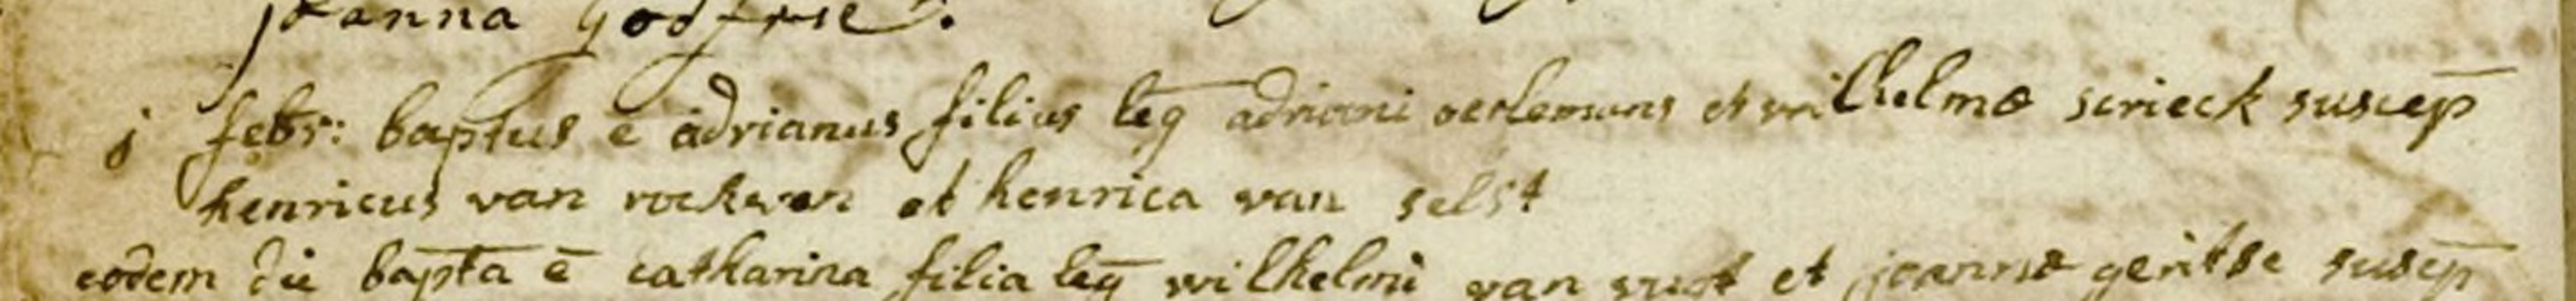 joanna godfrse.
j febr: baptus e adrianus filius leg adriani oerlemans et wilhelmæ scrieck suscep
henricus van rockven et henrica van selst
eodem die bapta e catharina filia leg wilhelmi van et joannæ geritse suscep